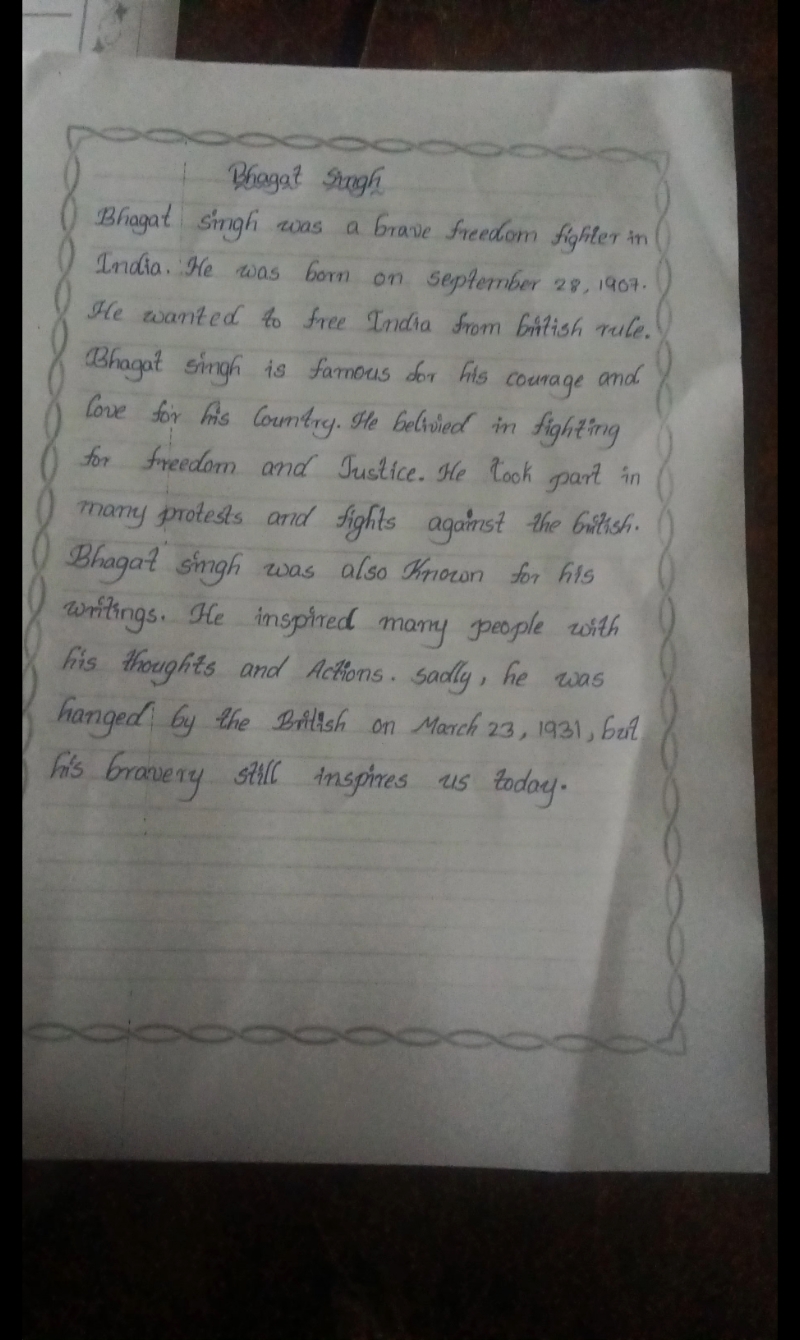 Bhagat Singh
Bhagat singh was a brave freedom fighter in
India. He was born on september 28, 1907.
He wanted to free India from british rule.
Bhagat singh is famous for his courage and
love for his Country. He belivied in fighting
for freedom and Justice. He took part in
many protests and fights against the british.
Bhagat singh was also Known for his
writings. He inspired many people with
his thoughts and Actions. sadly, he was
hanged by the British on March 23, 1931, but
his bravery still inspires us today.